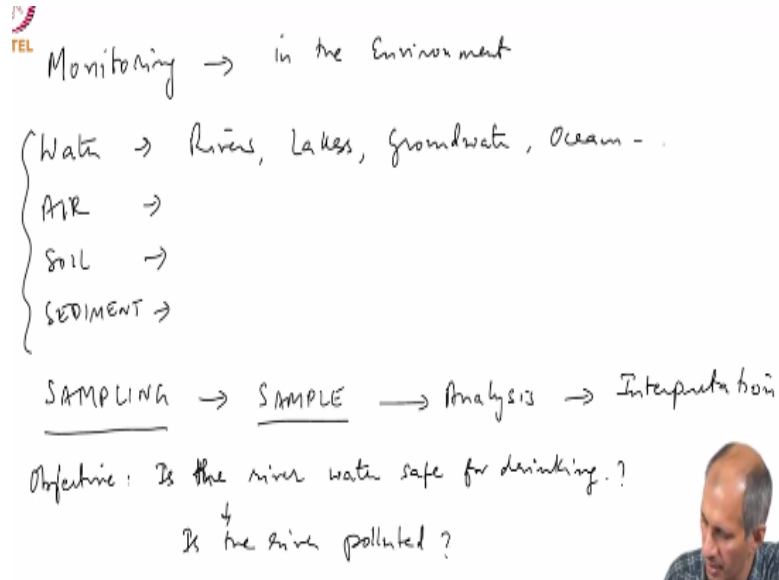 TEL
Monitoring → in the Environment
Water → Rivers, Lakes, Groundwater, Ocean - .
AIR →
SOIL →
SEDIMENT →
SAMPLING → SAMPLE → Analysis → Interpretation
Objective : Is the river water safe for drinking. ?
↓
Is the river polluted ?